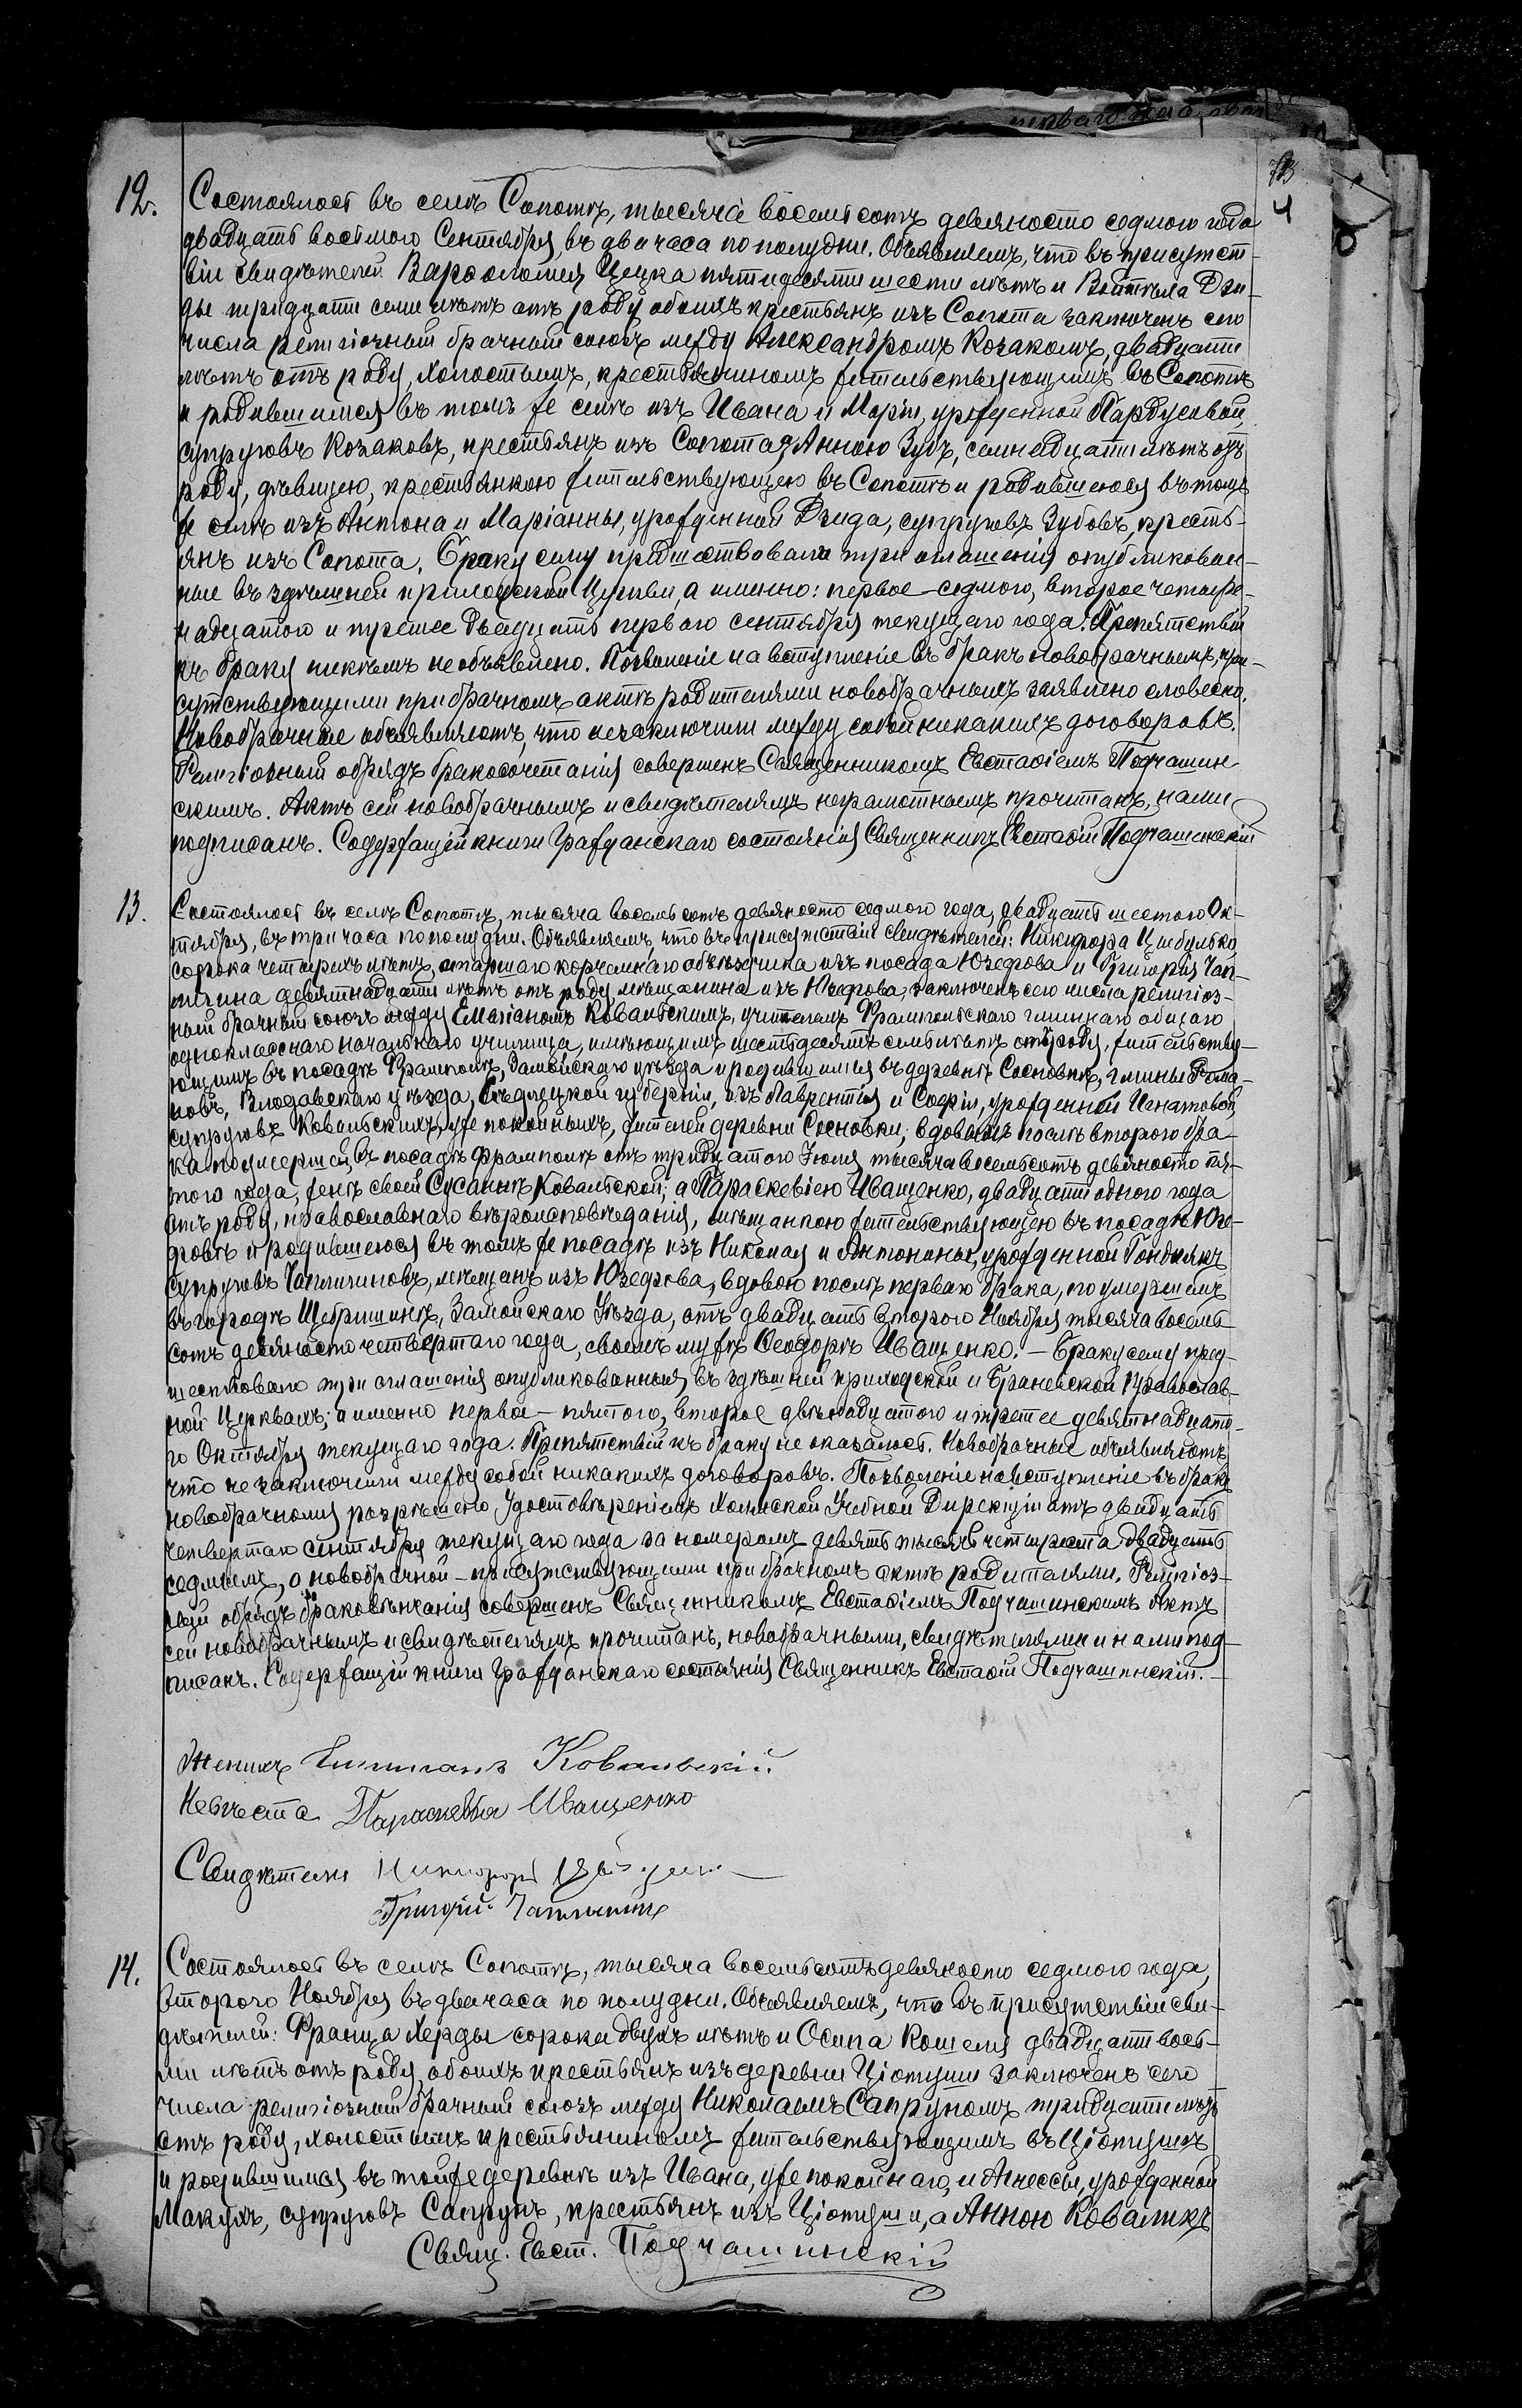 перваго
4
12. Состоялось въ селѣ Сопотѣ, тысяча восемьсотъ девяносто седмого года
двадцать восьмого Сентября, въ два часа по полудни. Объявляемъ, что въ присутст-
віи свидѣтелей Варѳоломея Цецка пятидесяти шести лѣтъ и Войтѣха Дзи-
ды тридцати семи лѣтъ отъ роду обоихъ крестьянъ изъ Сопота заключенъ сего
числа религіозный брачный союзъ между Александромъ Козакомъ, двадцати
лѣтъ отъ роду, холостымъ, крестьяниномъ жительствующимъ въ Сопотѣ
и родившимся въ томъ же селѣ изъ Ивана и Маріи, урожденной Пардусовой,
супруговъ Козаковъ, крестьянъ изъ Сопота, и Анною Зубъ, семнадцати лѣтъ отъ
роду, дѣвицею, крестьянкою жительствующею въ Сопотѣ и родившеюся въ томъ
же селѣ изъ Антона и Маріанны, урожденной Дзида, супруговъ Зубовъ, кресть-
янъ изъ Сопота. Браку сему предшествовали три оглашенія опубликован-
ные въ здѣшней приходской Церкви, а именно: первое – седмого, второе четыр-
надцатого и третее двадцать перваго сентября текущаго года. Препятствій
къ браку никѣмъ не объявлено. Позволеніе на вступленіе въ бракъ новобрачнымъ, при-
сутствующими при брачномъ актѣ родителями новобрачныхъ заявлено словесно.
Новобрачные объявляютъ, что незаключили между собой никакихъ договоровъ.
Религіозный обрядъ бракосочетанія совершенъ Священникомъ Евстаѳіемъ Подчашин-
скимъ. Актъ сей новобрачнымъ и свидѣтелямъ неграмотнымъ прочитанъ, нами
подписанъ. Содержащій книги Гражданскаго состоянія Священникъ Евстаѳій Подчашинскій
13. Состоялось въ селѣ Сопотѣ, тысяча восемьсотъ девяносто седмого года, двадцать шестого Ок-
тября, въ три часа по полудни. Объявляемъ, что въ присутствіи свидѣтелей: Никифора Цыбулько
сорока четырехъ лѣтъ, старшаго корчемнаго объѣздчика изъ посада Юзефова и Григорія Чап-
лыгина девятнадцати лѣтъ отъ роду, мѣщанина изъ Юзефова, заключенъ сего числа религіоз-
ный брачный союзъ между Емиліаномъ Ковальскимъ, учителемъ Фрампольскаго гминнаго общаго
одноклассного начальнаго училища, имѣющимъ шестьдесятъ семь лѣтъ отъ роду, жительству-
ющимъ въ посадѣ Фрамполѣ, Замойскаго уѣзда и родившимся въ деревнѣ Сосновкѣ, гмины Рома-
новъ, Влодавскаго уѣзда, Сѣдлецкой губерніи, изъ Лаврентія и Софіи, урожденной Игнатовой
супруговъ Ковальскихъ, уже покойныхъ, жителей деревни Сосновки, вдовымъ послѣ второго бра-
ка по умершей въ посадѣ Фрамполѣ отъ тридцатого Іюля тысяча восемьсотъ девяносто пя-
того года, женѣ своей Сусаннѣ Ковальской; а Параскевіею Иващенко, двадцати одного года
отъ роду, православнаго вѣроисповѣданія, мѣщанкою жительствующею въ посадѣ Юзе-
фовѣ и родившеюся въ томъ же посадѣ изъ Николая и Антонины, урожденной
супруговъ Чаплыгиновъ, мѣщанъ изъ Юзефова, вдовою послѣ перваго брака, по умершемъ
въ городѣ Щебришинѣ, Замойскаго Уѣзда, отъ двадцать второго Ноября тысяча восемь
сотъ девяносто четвертаго года, своемъ мужѣ Ѳеодорѣ Иващенко. – Браку сему пред-
шествовало три оглашенія опубликованныя, въ здѣшней приходской и Браневской Православ-
ной Церквахъ; а именно первое – пятого, второе двѣнадцатого и третее девятнадцато-
го Октября текущаго года. Препятствій къ браку не оказалось. Новобрачные объявляютъ
что не заключили между собой никакихъ договоровъ. Позволеніе на вступленіе въ бракъ
новобрачному разрѣшено Удостовѣреніемъ Холмской Учебной Дирекціи отъ двадцать
четвертаго сентября текущаго года за номеромъ девять тысячъ четыреста двадцать
седмымъ, а новобрачной – присутствующими при брачномъ актѣ родителями. Религіоз-
ный обрядъ браковѣнчанія совершенъ Священникомъ Евстаѳіемъ Подчашинскимъ Актъ
сей новобрачнымъ и свидѣтелямъ прочитанъ, новобрачными, свидѣтелями и нами под-
писанъ. Содержащій книги Гражданскаго состоянія Священникъ Евстаѳій Подчашинскій. –
Женихъ Ковальскій.
Невѣста Параскевія Иващенко
Свидѣтели Никифоръ
Григорій Чаплыгинъ
14. Состоялось въ селѣ Сопотѣ, тысяча восемьсотъ девяносто седмого года,
второго Ноября въ два часа по полудни. Объявляемъ, что въ присутствіи сви-
дѣтелей: Франца Херды сорока двухъ лѣтъ и Осипа Кошеля двадцати вось-
ми лѣтъ отъ роду, обоихъ крестьянъ изъ деревни Ціотуши заключенъ сего
числа религіозный брачный союзъ между Николаемъ Сапруномъ тридцати лѣтъ
отъ роду, холостымъ крестьяниномъ жительствующимъ въ Ціотушѣ
и родившимся въ той же деревнѣ изъ Ивана, уже покойнаго, и Агнессы, урожденной
Макухъ, супруговъ Сапрунъ, крестьянъ изъ Ціотуши, а Анною Коваликъ
Свящ. Евст. Подчашинскій